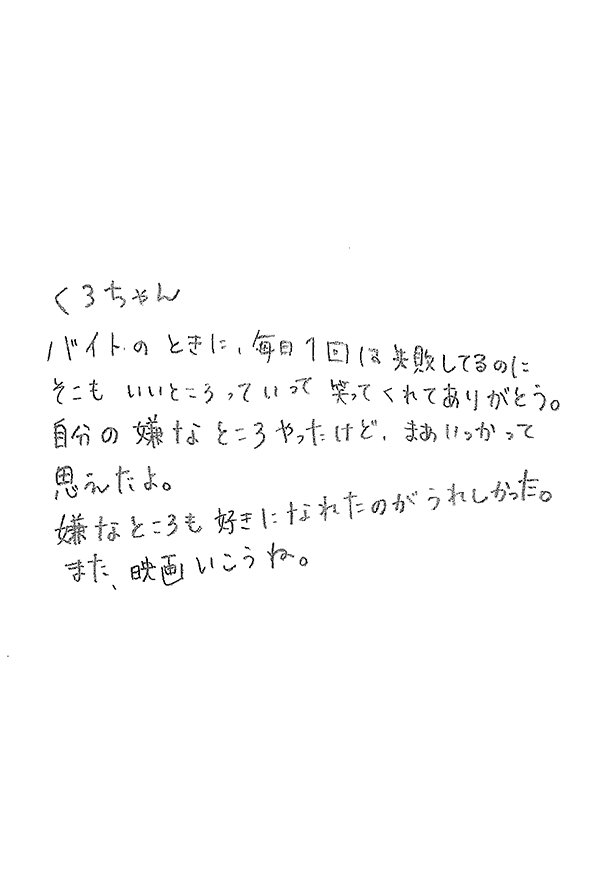 くろちゃん
バイトのときに、毎日1回は失敗してるのに
そこも いいところっていって 笑ってくれてありがとう。
自分の嫌なところやったけど、まあいっかって
思えたよ。
嫌なところも好きになれたのがうれしかった。
また、映画いこうね。